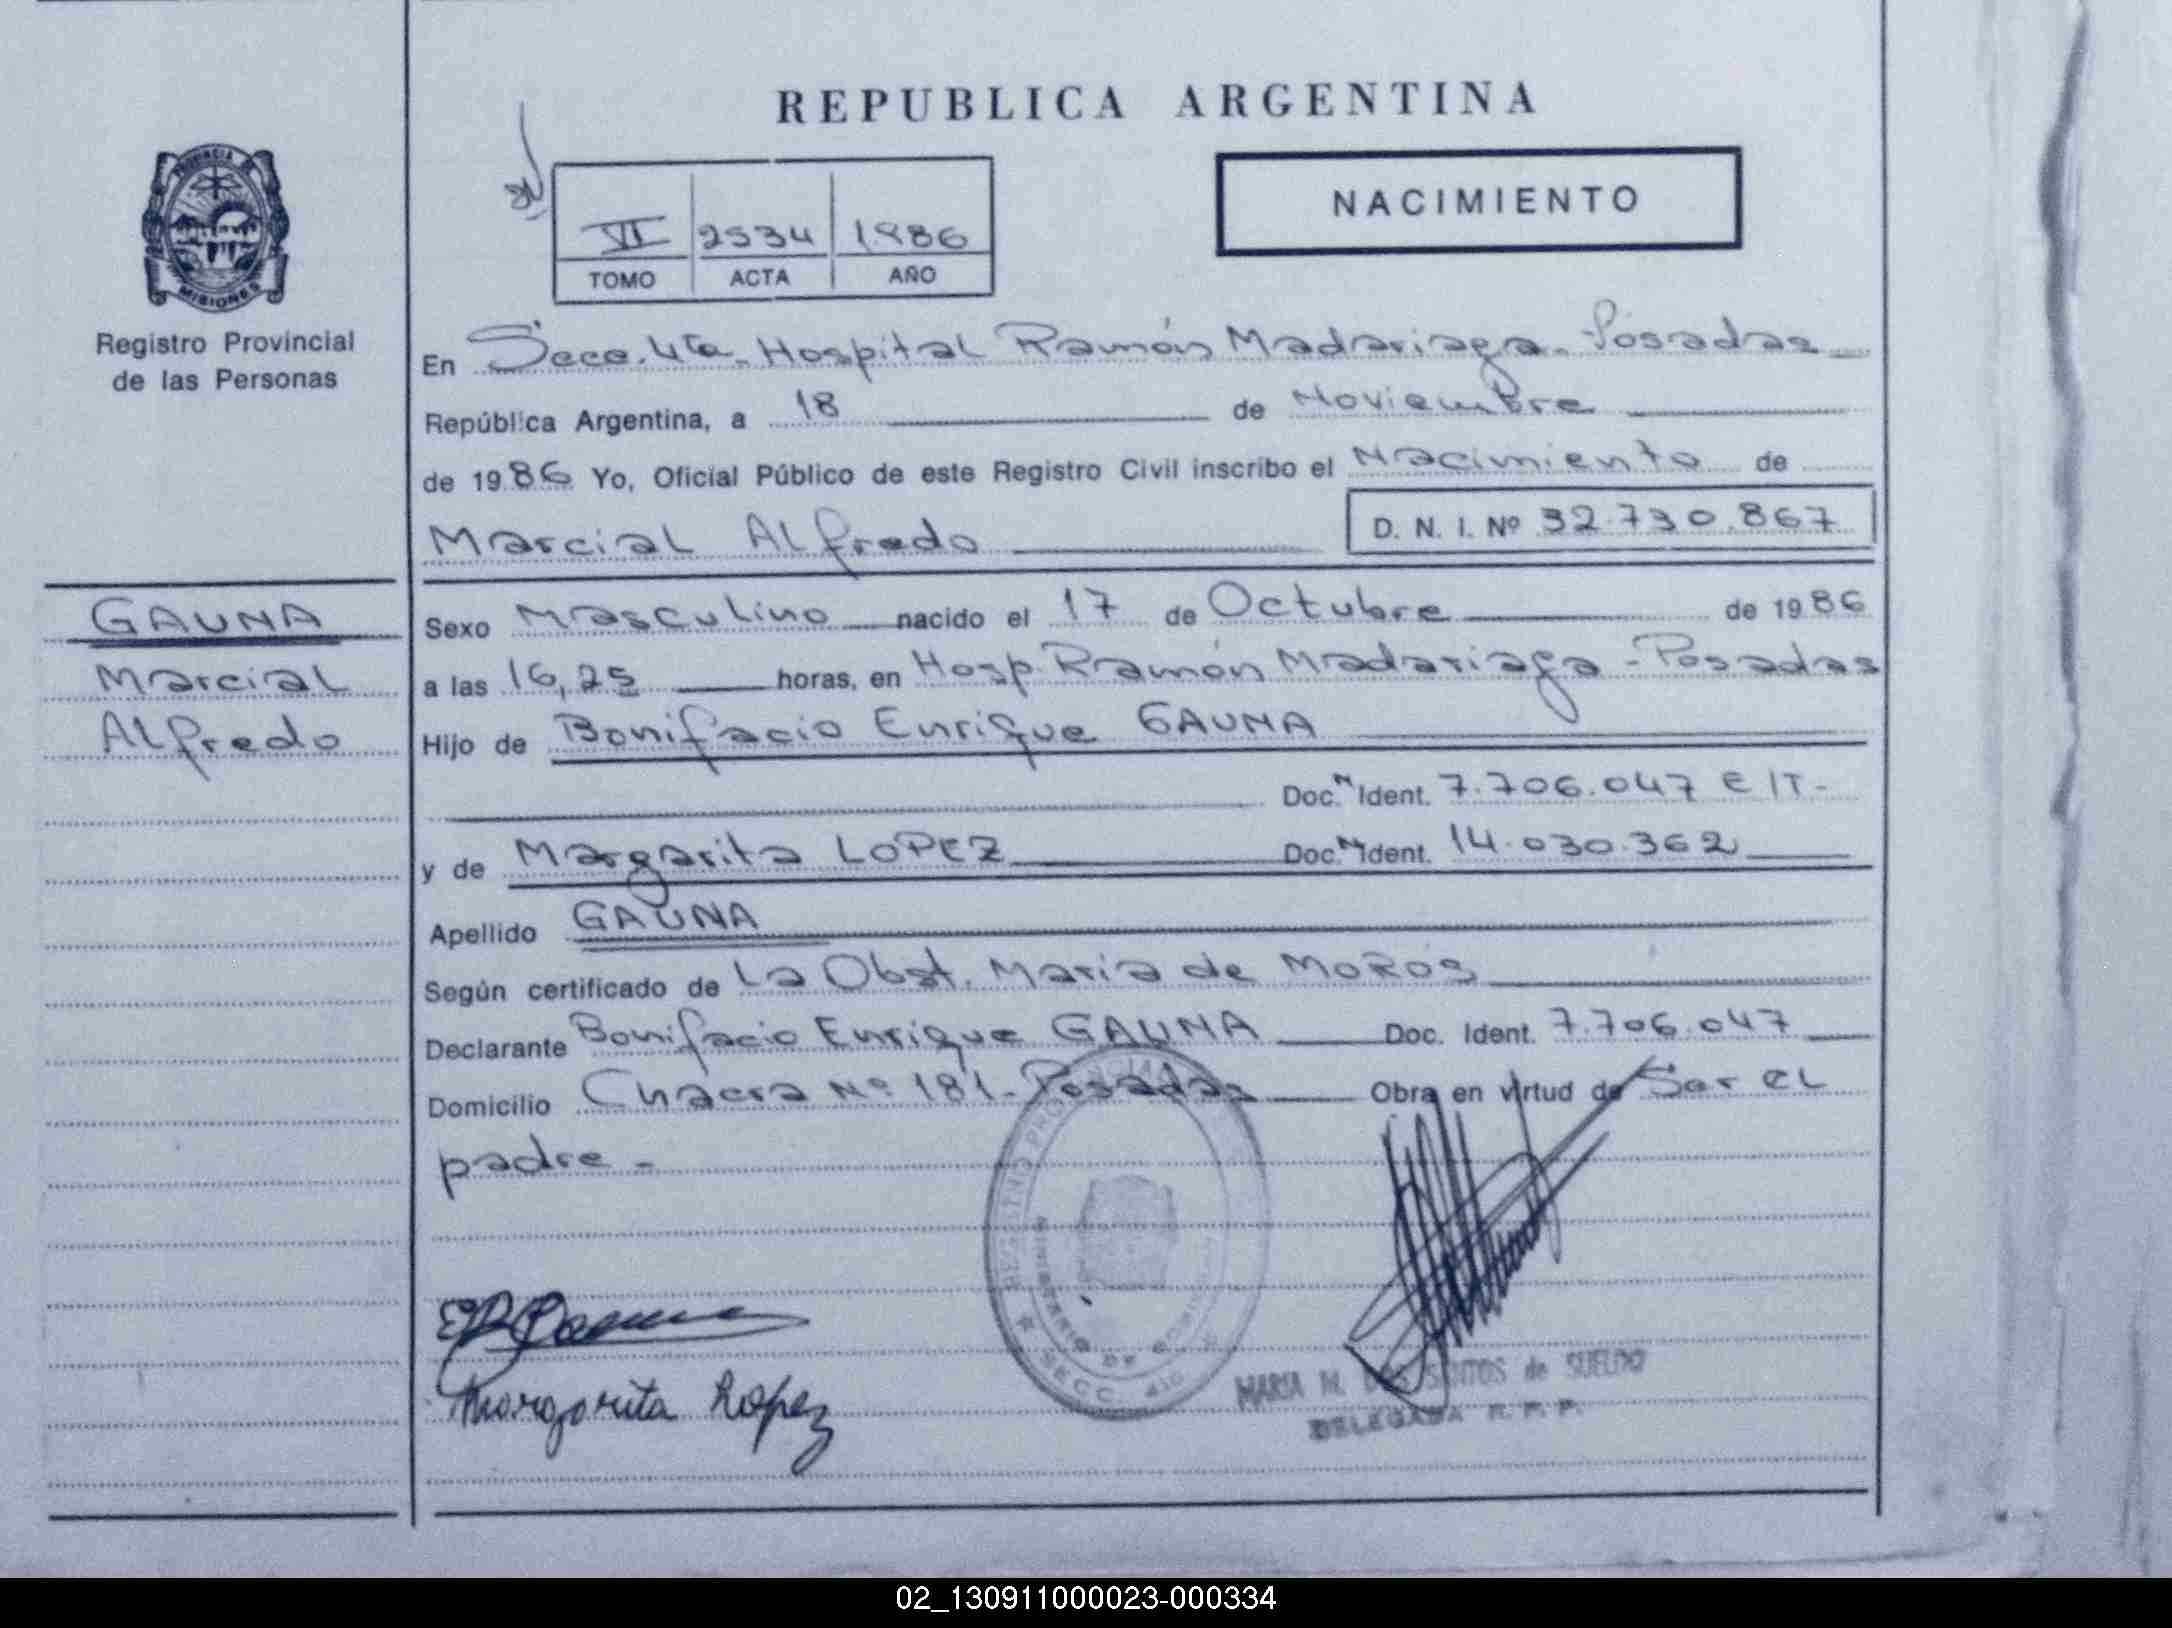 REPUBLICA ARGENTINA
NACIMIENTO
VI 2534 1986
TOMO ACTA AÑO
PROVINCIA DE
MISIONES
Registro Provincial
de las Personas
En Secc. 4ta. Hospital Ramón Madariaga - Posadas
República Argentina, a 18 de Noviembre
de 1986 Yo, Oficial Público de este Registro Civil inscribo el Nacimiento de
Marcial Alfredo D. N. I. Nº 32.730.867
GAUNA
Marcial
Alfredo
Sexo Masculino nacido el 17 de Octubre de 1986
a las 16,25 horas, en Hosp. Ramón Madariaga - Posadas
Hijo de Bonifacio Enrique GAUNA
Doc. Ident. 7.706.047 E/T-
y de Margarita LOPEZ Doc. Ident. 14.030.362
Apellido GAUNA
Según certificado de La Obst. María de MOROS
Declarante Bonifacio Enrique GAUNA Doc. Ident. 7.706.047
Domicilio Chacra Nº 181 - Posadas Obra en virtud de Ser el
padre -
REGISTRO PROVINCIAL
SECC. 4ta
Margarita Lopez
MARIA M. DOS SANTOS de SUELDO
DELEGADA R. P. P.
02_130911000023-000334